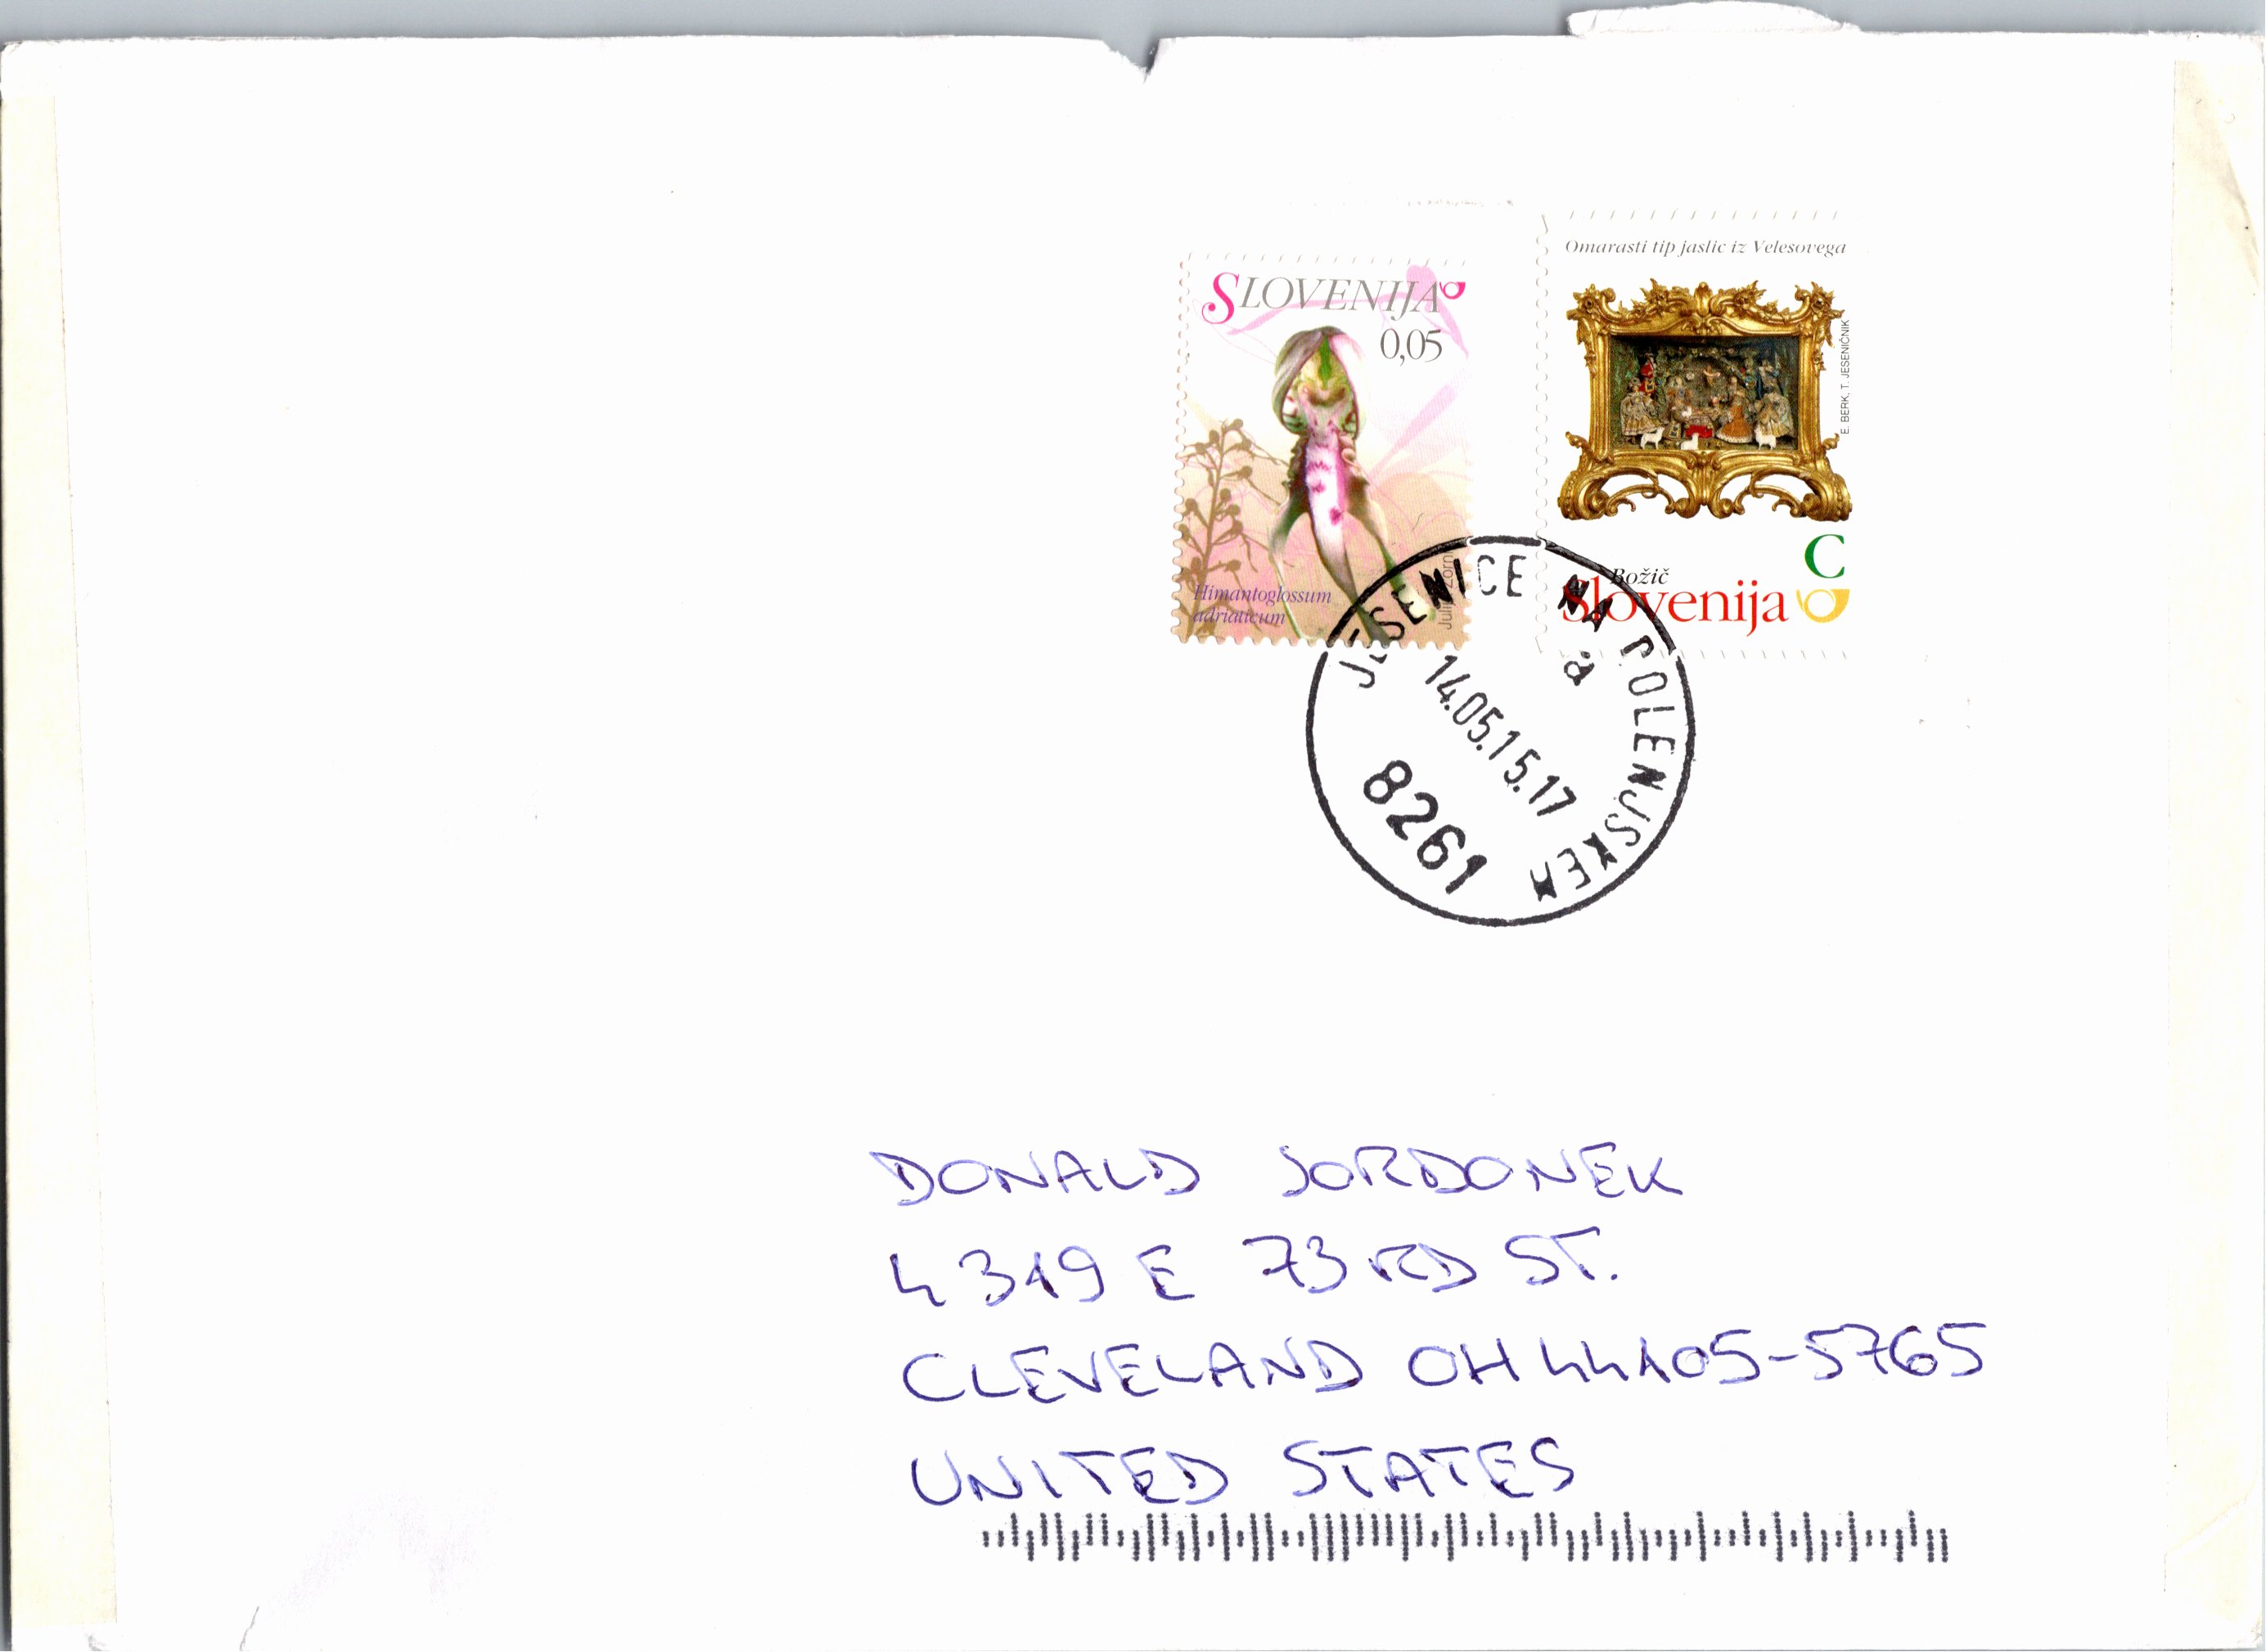 SLOVENIJA
0,05
Himantoglossum
adriaticum
Omarasti tip jaslic iz Velesovega
E. BERK, T. JESENIČNIK
C
Božič
Slovenija
JESENICE NA DOLENJSKEM
a
14.05.15.17
8261
DONALD JORDONEK
4319 E 73RD ST.
CLEVELAND OH 44105-5765
UNITED STATES